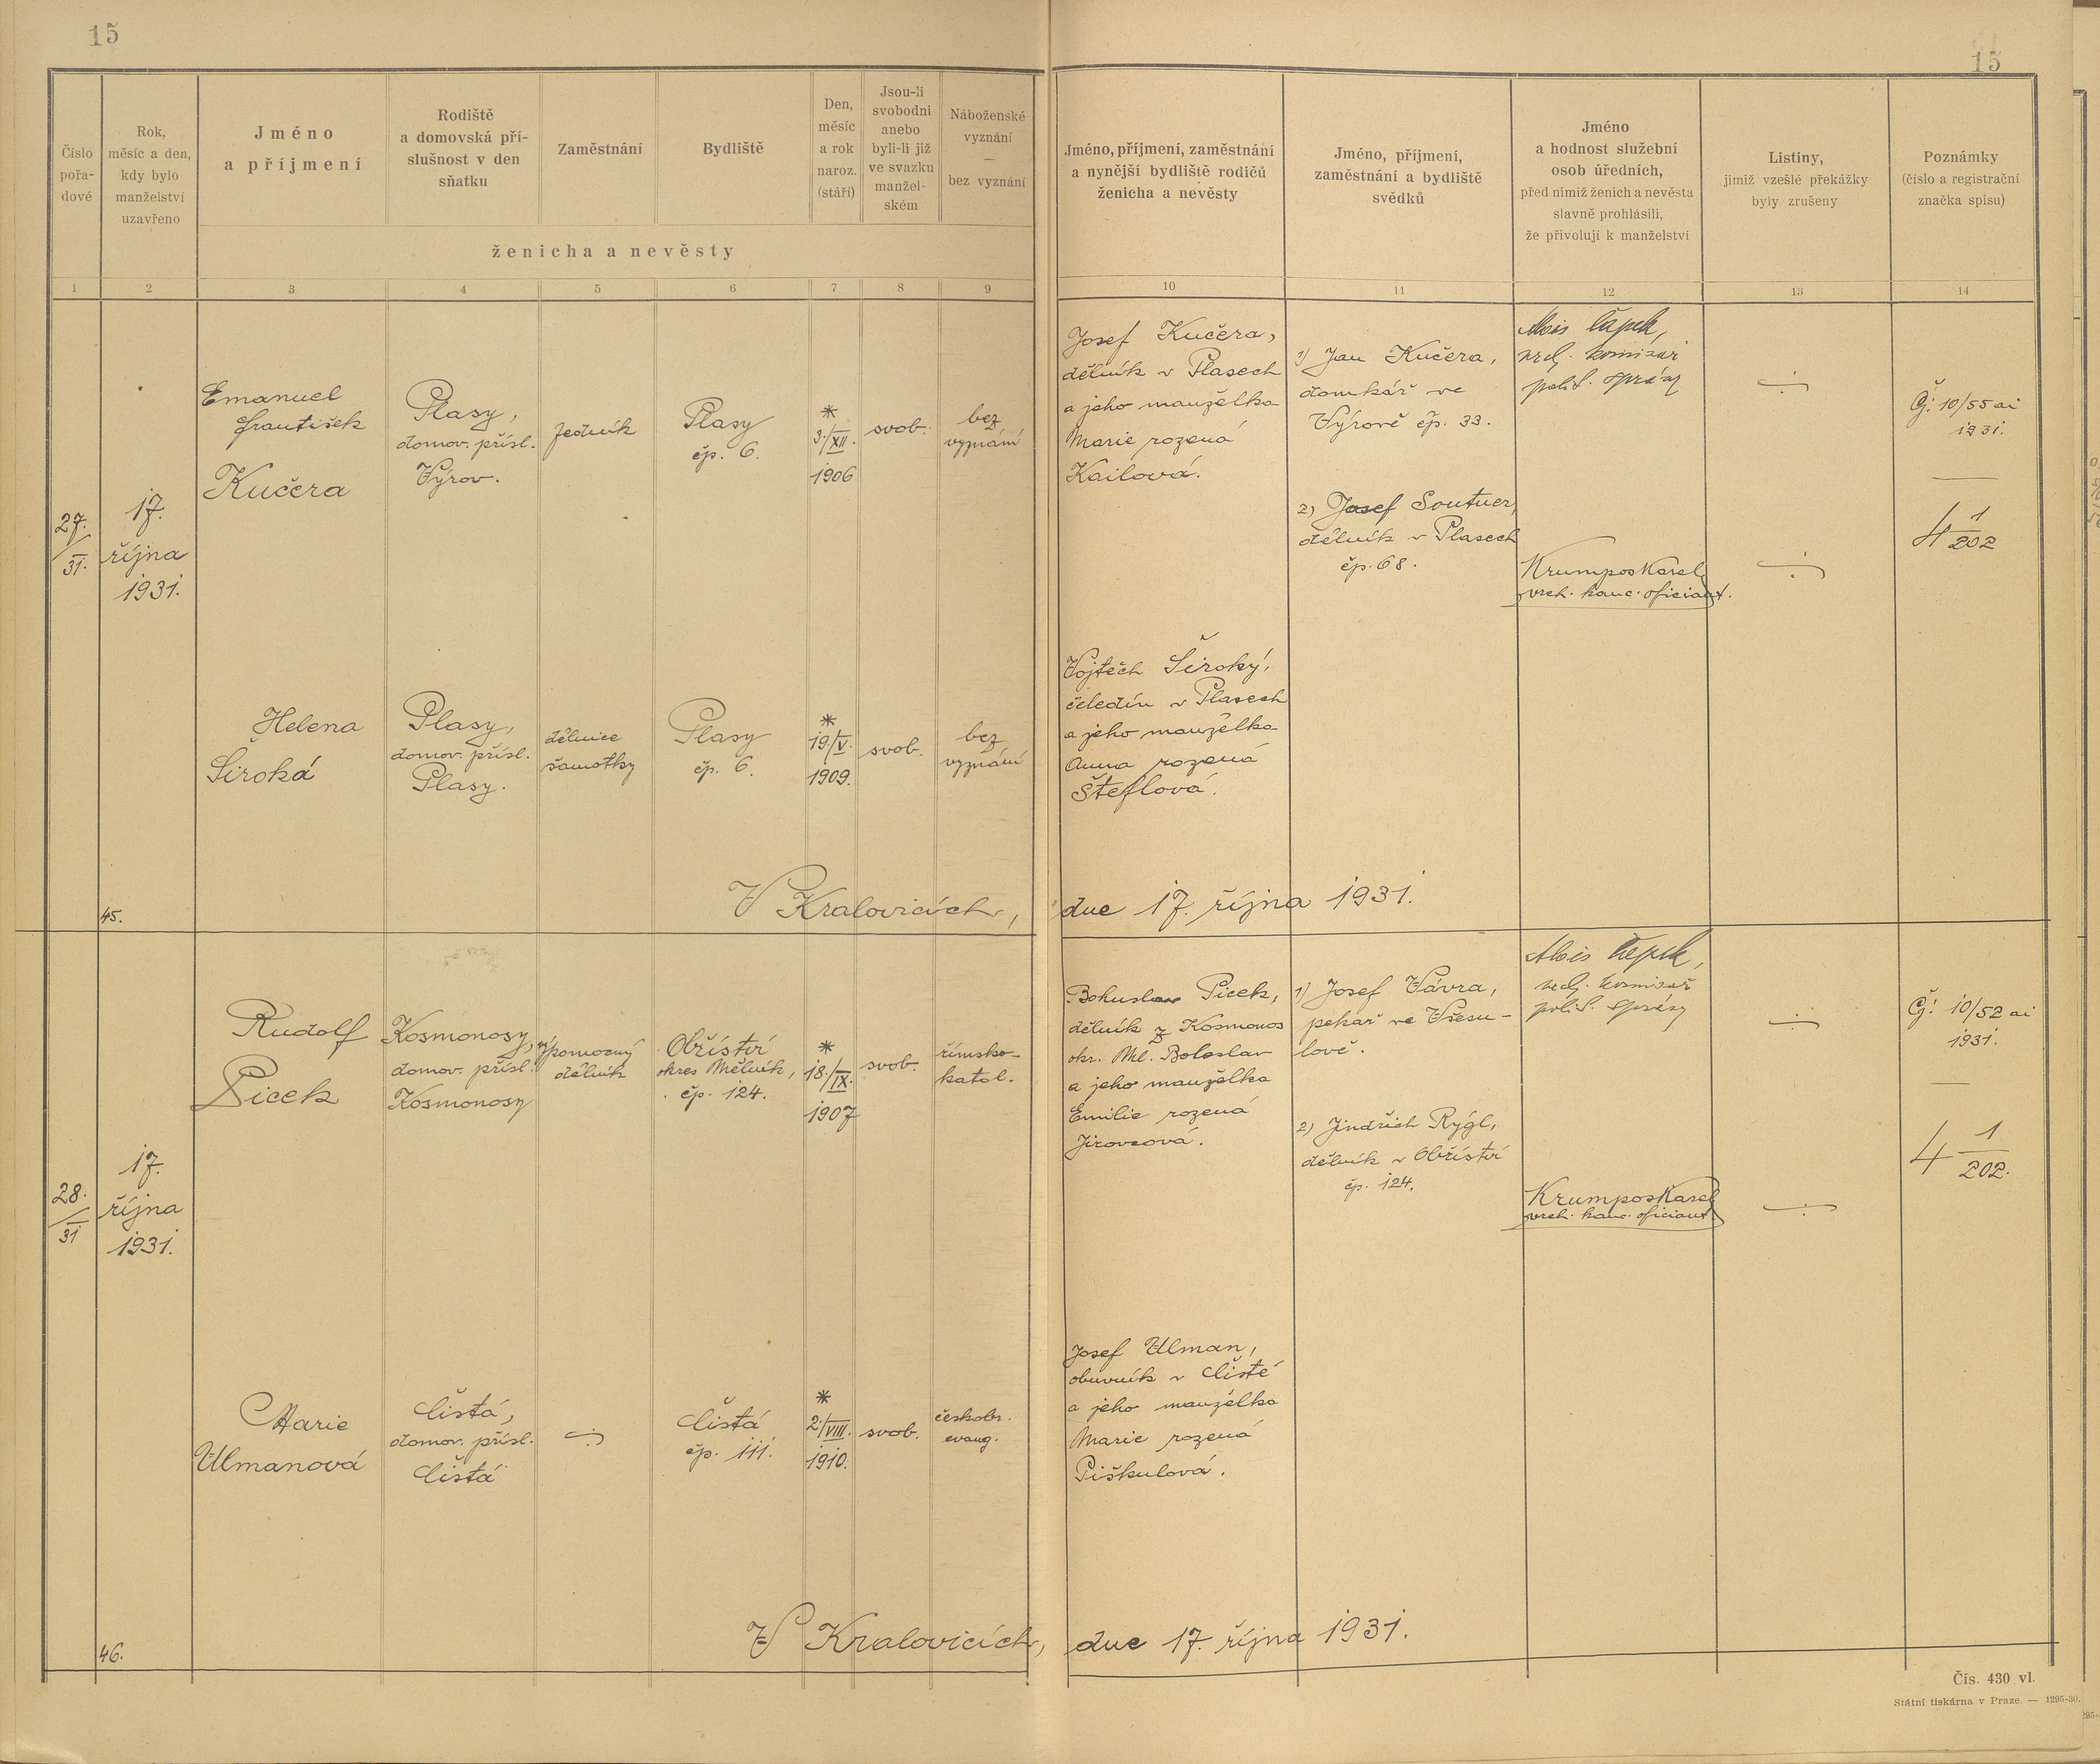 15
15
Číslo
pořa-
dové
Rok,
měsíc a den,
kdy bylo
manželství
uzavřeno
Jméno
a příjmení
Rodiště
a domovská pří-
slušnost v den
sňatku
Zaměstnání
Bydliště
Den,
měsíc
a rok
naroz.
(stáří)
Jsou-li
svobodni
anebo
byli-li již
ve svazku
manžel-
ském
Náboženské
vyznání
—
bez vyznání
ženicha a nevěsty
Jméno, příjmení, zaměstnání
a nynější bydliště rodičů
ženicha a nevěsty
Jméno, příjmení,
zaměstnání a bydliště
svědků
Jméno
a hodnost služební
osob úředních,
před nimiž ženich a nevěsta
slavně prohlásili,
že přivolují k manželství
Listiny,
jimiž vzešlé překážky
byly zrušeny
Poznámky
(číslo a registrační
značka spisu)
1 2 3 4 5 6 7 8 9 10 11 12 13 14
27.
31.
17.
října
1931.
Emanuel
František
Kučera
Plasy,
domov. přísl.
Výrov.
Plasy
čp. 6.
*
3./XII.
1906
svob.
bez
vyznání
Josef Kučera,
dělník v Plasech
a jeho manželka
Marie rozená
Kailová.
1) Jan Kučera,
domkář ve
Výrově čp. 33.
2) Josef Soutner,
dělník v Plasech
čp. 68.
Alois Čapek,
komisař
polit. správy
Krumpos Karel
vrch. kanc. oficiant.
Č: 10/55 ai
1931.
4 1/202
Helena
Široká
Plasy,
domov. přísl.
Plasy.
dělnice
šamotky
Plasy
čp. 6.
*
19./V.
1909.
svob.
bez
vyznání
Vojtěch Široký,
čeledín v Plasech
a jeho manželka
Anna rozená
Šteflová.
45.
V Kralovicích, dne 17. října 1931.
28.
31
17.
října
1931.
Rudolf
Picek
Kosmonosy,
domov. přísl.
Kosmonosy
výpomocný
dělník
Obříství
okres Mělník,
čp. 124.
*
18./IX.
1907
svob.
římsko-
katol.
Bohuslav Picek,
dělník z Kosmonos
okr. Ml. Boleslav
a jeho manželka
Emilie rozená
Jirovcová.
1) Josef Vávra,
pekař ve Všesu-
lově.
2) Jindřich Rýgl,
dělník v Obříství
čp. 124.
Alois Čapek,
komisař
polit. správy
Krumpos Karel
vrch. kanc. oficiant.
Č: 10/52 ai
1931.
4 1/202.
Marie
Ulmanová
Čistá,
domov. přísl.
Čistá
Čistá
čp. 111.
*
2./VIII.
1910.
svob.
českobr.
evang.
Josef Ulman,
obuvník v Čisté
a jeho manželka
Marie rozená
Piškulová.
46.
V Kralovicích, dne 17. října 1931.
Čís. 430 vl.
Státní tiskárna v Praze. — 1295-30.